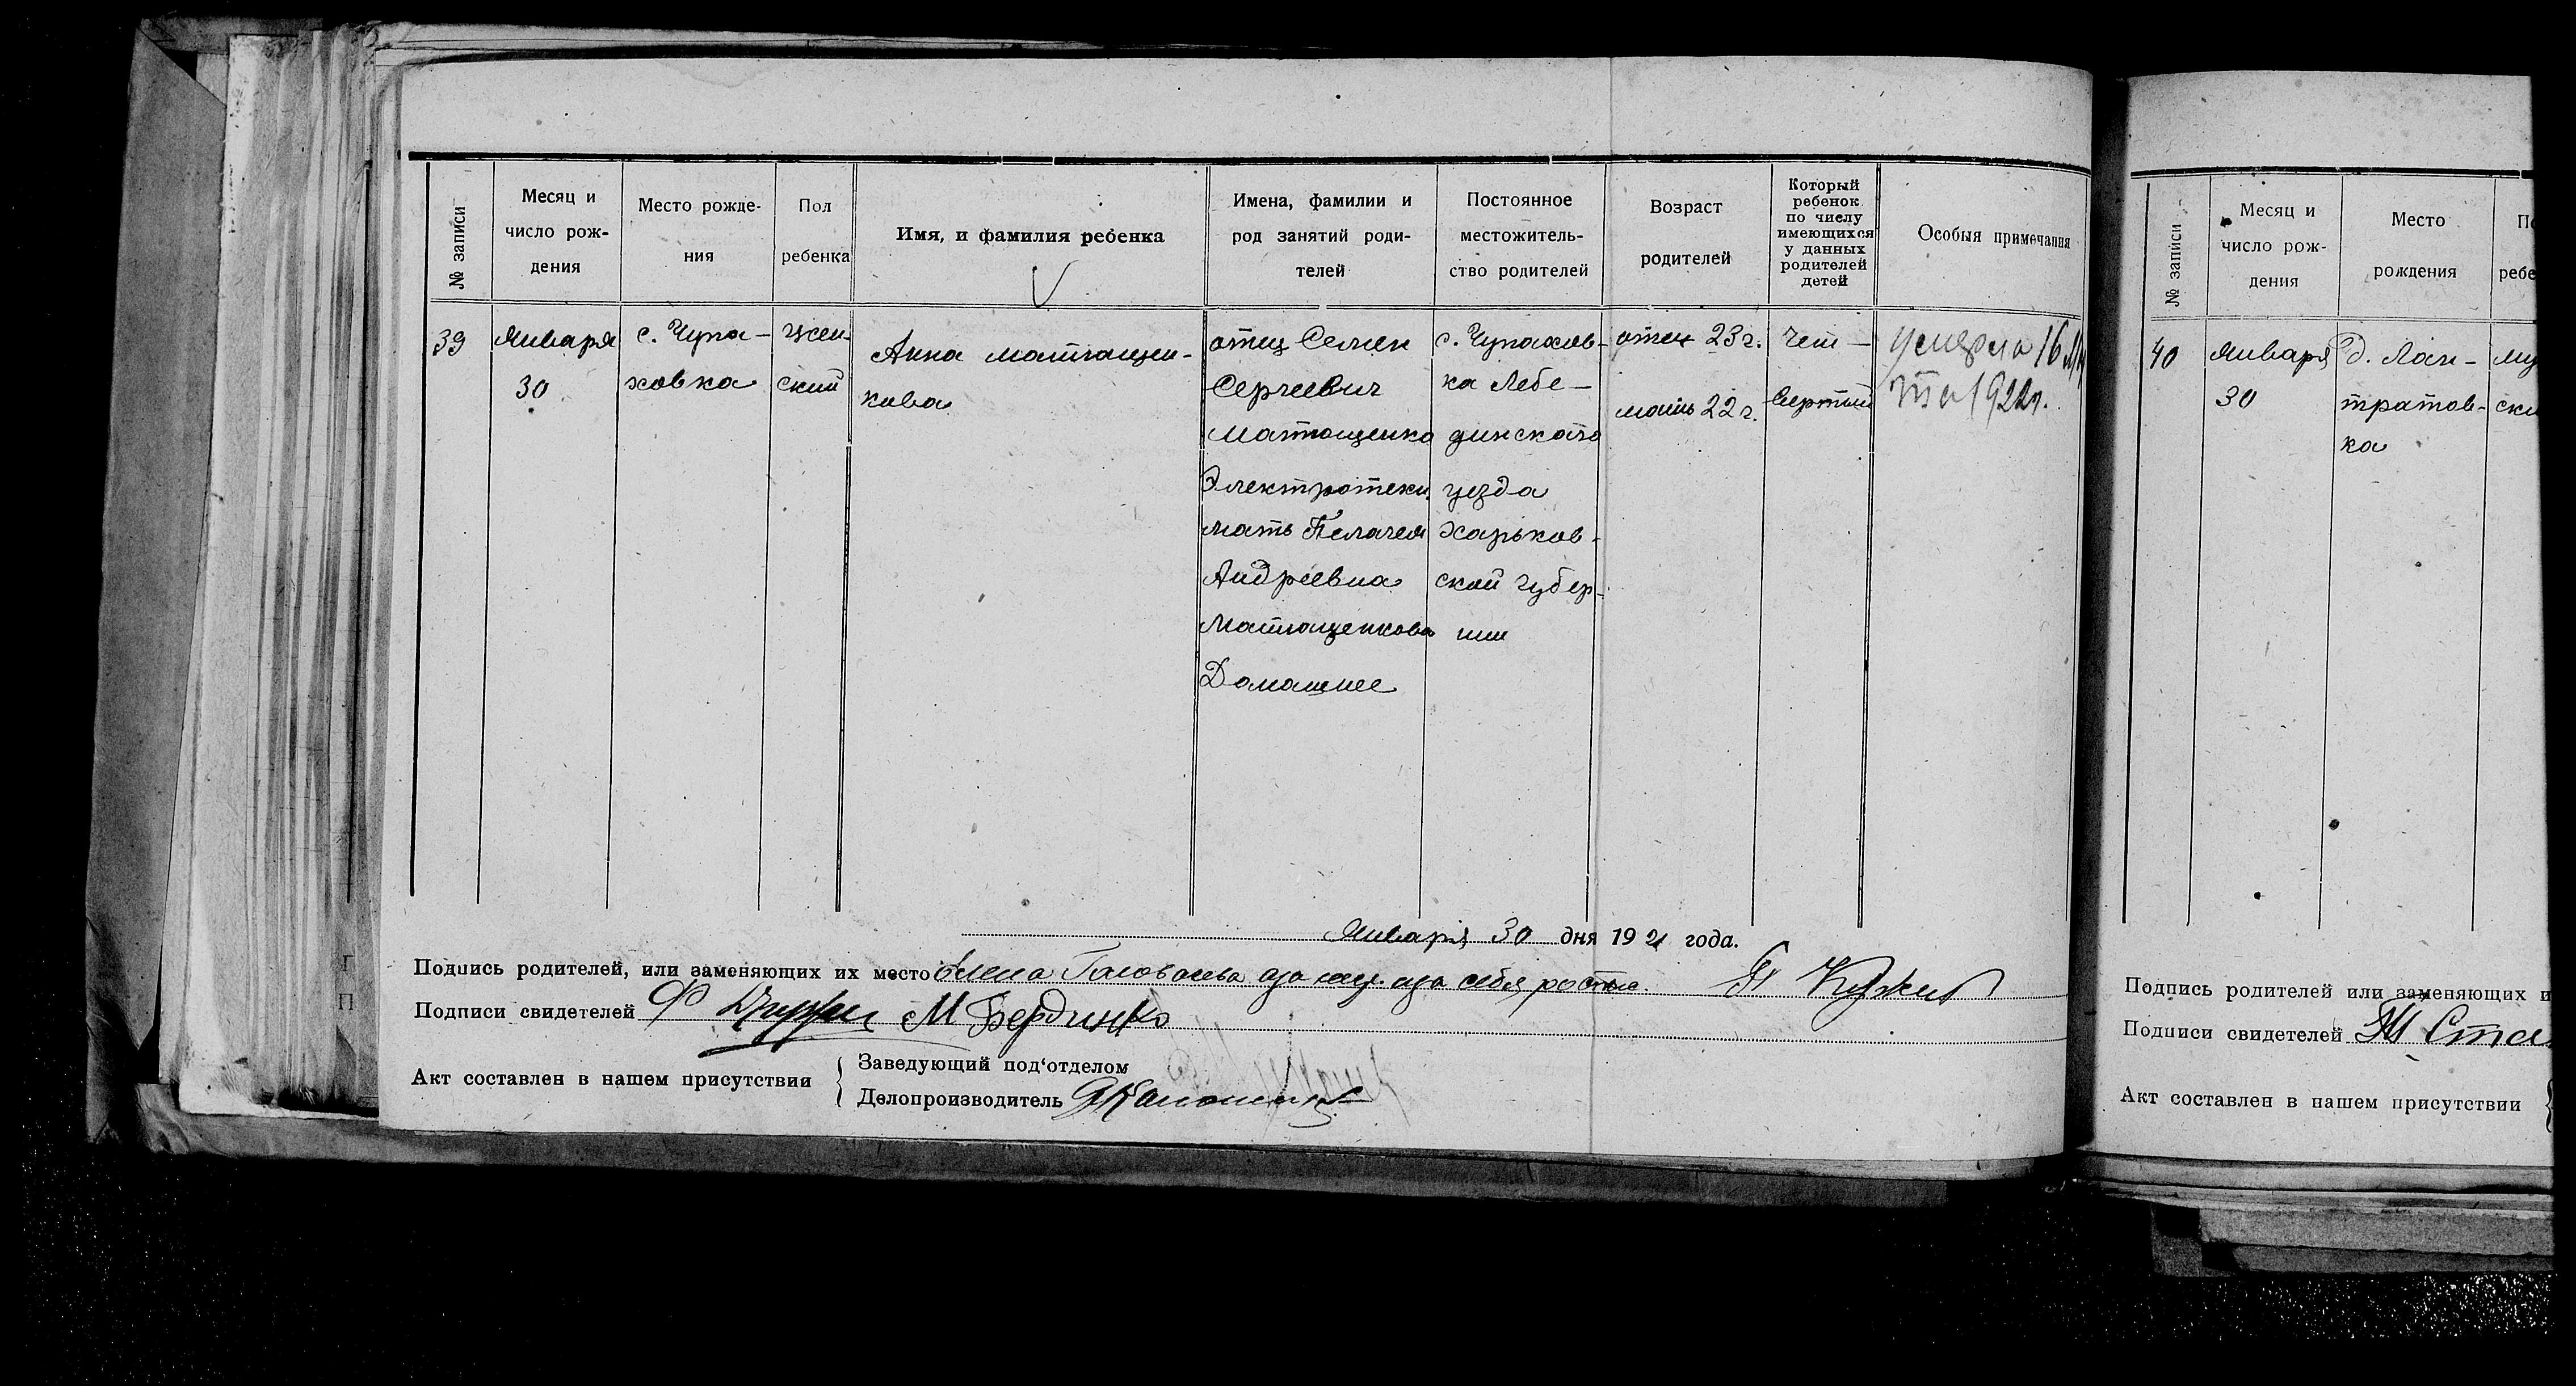 № записи
Месяц и
число рож-
дения
Место рожде-
ния
Пол
ребенка
Имя, и фамилия ребенка
Имена, фамилии и
род занятий роди-
телей
Постоянное
местожитель-
ство родителей
Возраст
родителей
Который
ребенок
по числу
имеющихся
у данных
родителей
детей
Особыя примечания
39
Января
30
с. Чупа-
ховка
жен-
ский
Анна Матющен-
кова
отец Семен
Сергеевич
Матющенко
Электротехн.
мать Пелагея
Андреевна
Матющенкова
Домашнее
с. Чупахов-
ка Лебе-
динского
уезда
Харьков-
ской губер-
нии
отец 23 г.
мать 22 г.
Чет-
вертый
умерла 16 Мар
та 1922 г.
Января 30 дня 1921 года.
Подпись родителей, или заменяющих их место
Подписи свидетелей
Акт составлен в нашем присутствии
Заведующий под'отделом
Делопроизводитель
№ записи
Месяц и
число рож-
дения
Место
рождения
По
ребе
40
Января
30
д. Лан-
тратов-
ка
му
ски
Подпись родителей или заменяющих и
Подписи свидетелей
Акт составлен в нашем присутствии